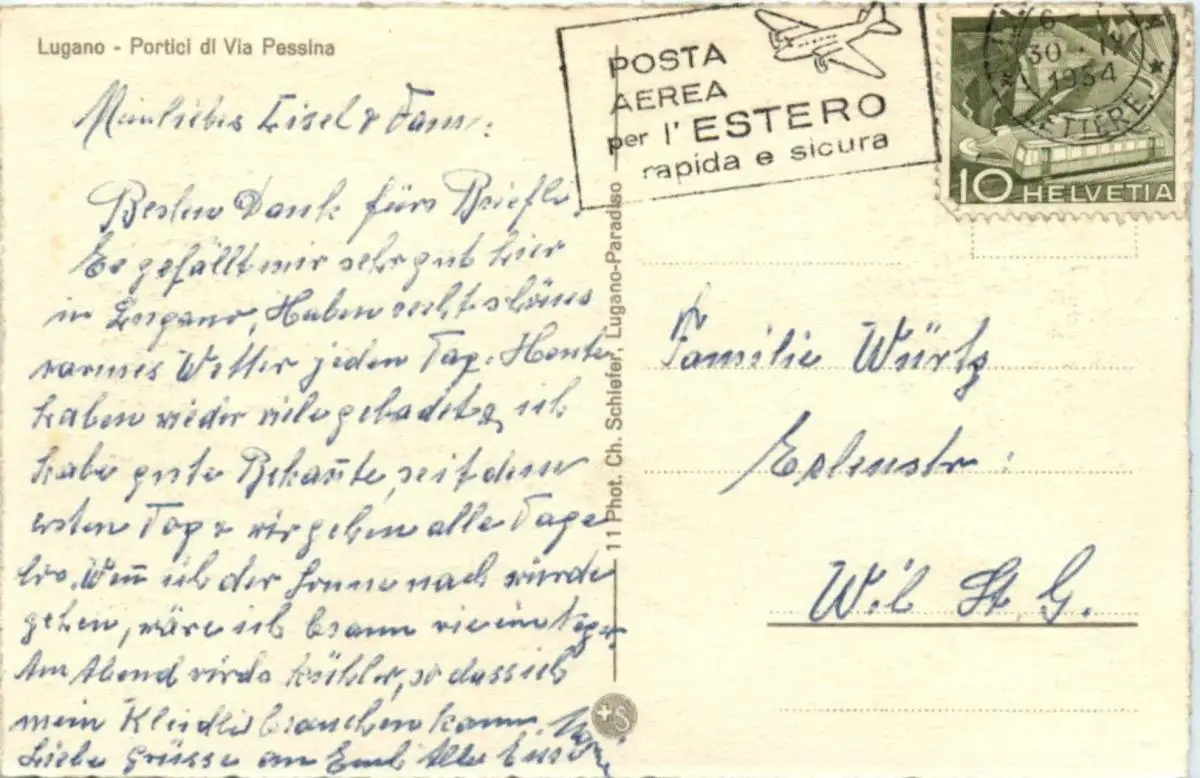 Lugano - Portici di Via Pessina
Mein liebes Lisel & Fam:
Besten Dank fürs Briefli.
Es gefällt mir sehr gut hier
in Lugano, Haben recht schönes
warmes Wetter jeden Tag. Heute
haben wieder viele gebadet, ich
habe gute Bekañte, seit dem
ersten Tag & wir gehen alle Tage
los. Weñ ich der Sonne nach würde
gehen, wäre ich braun wie ein
Am Abend wirds kühler, so dass ich
mein Kleidli brauchen kann.
Liebe Grüsse an Euch Alle
11 Phot. Ch. Schiefer, Lugano-Paradiso
POSTA
AEREA
per l'ESTERO
rapida e sicura
30 · IX
1954
LETTERE
10 HELVETIA
Familie Würtz
Erlenstr:
Wil St. G.
+S